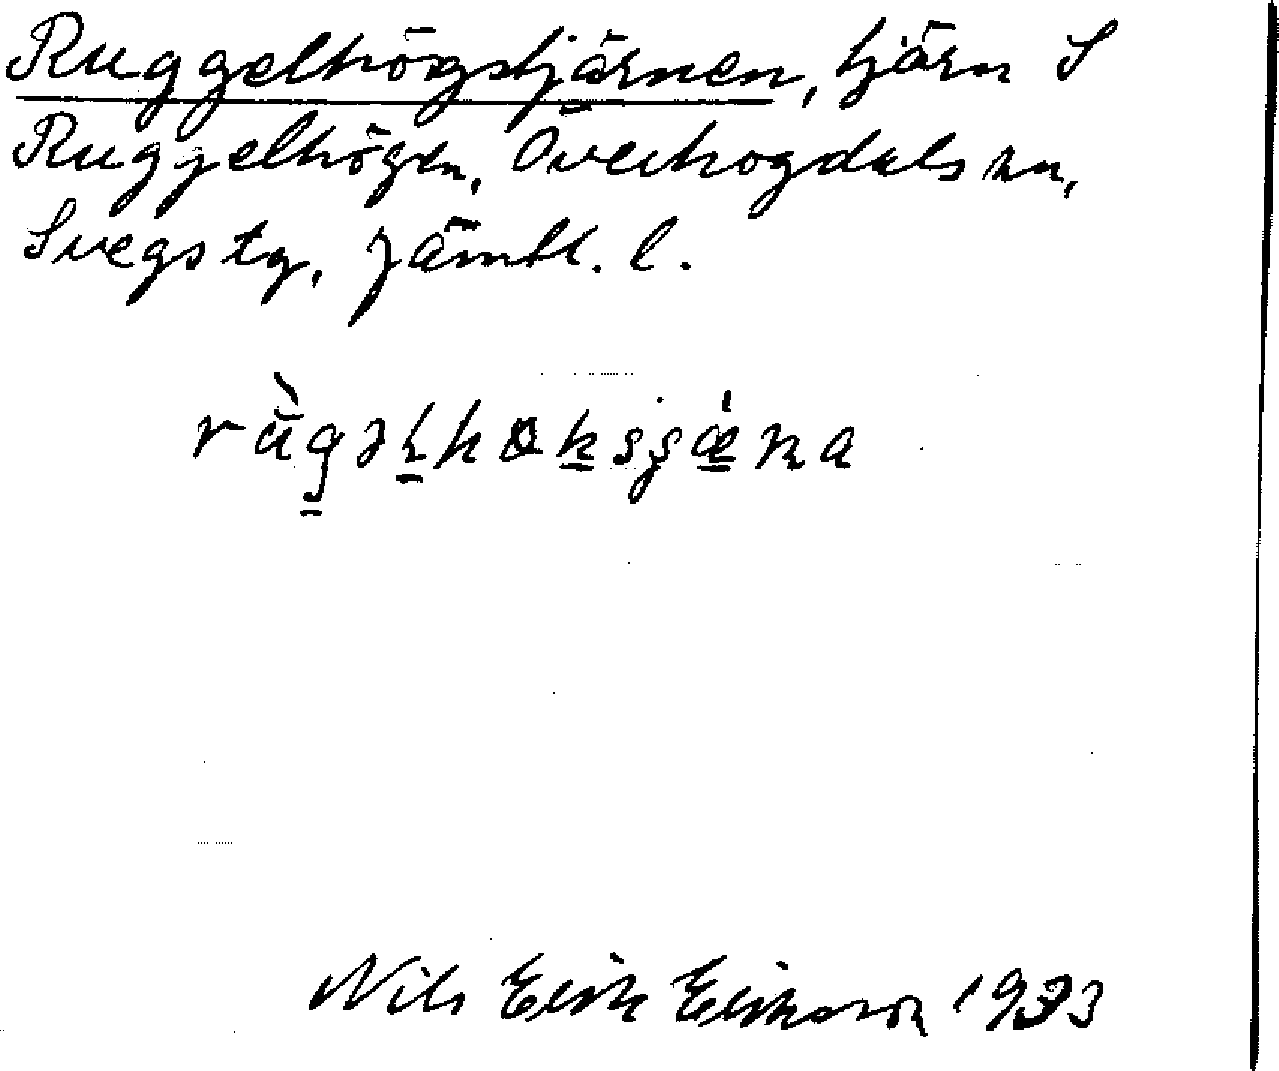 Ruggelhögstjärnen, tjärn S
Ruggelhögen, Överhogdals sn,
Svegs tg, Jämtl. l.
rùgəlhøksşǽna
Nils Erik Eriksson 1933